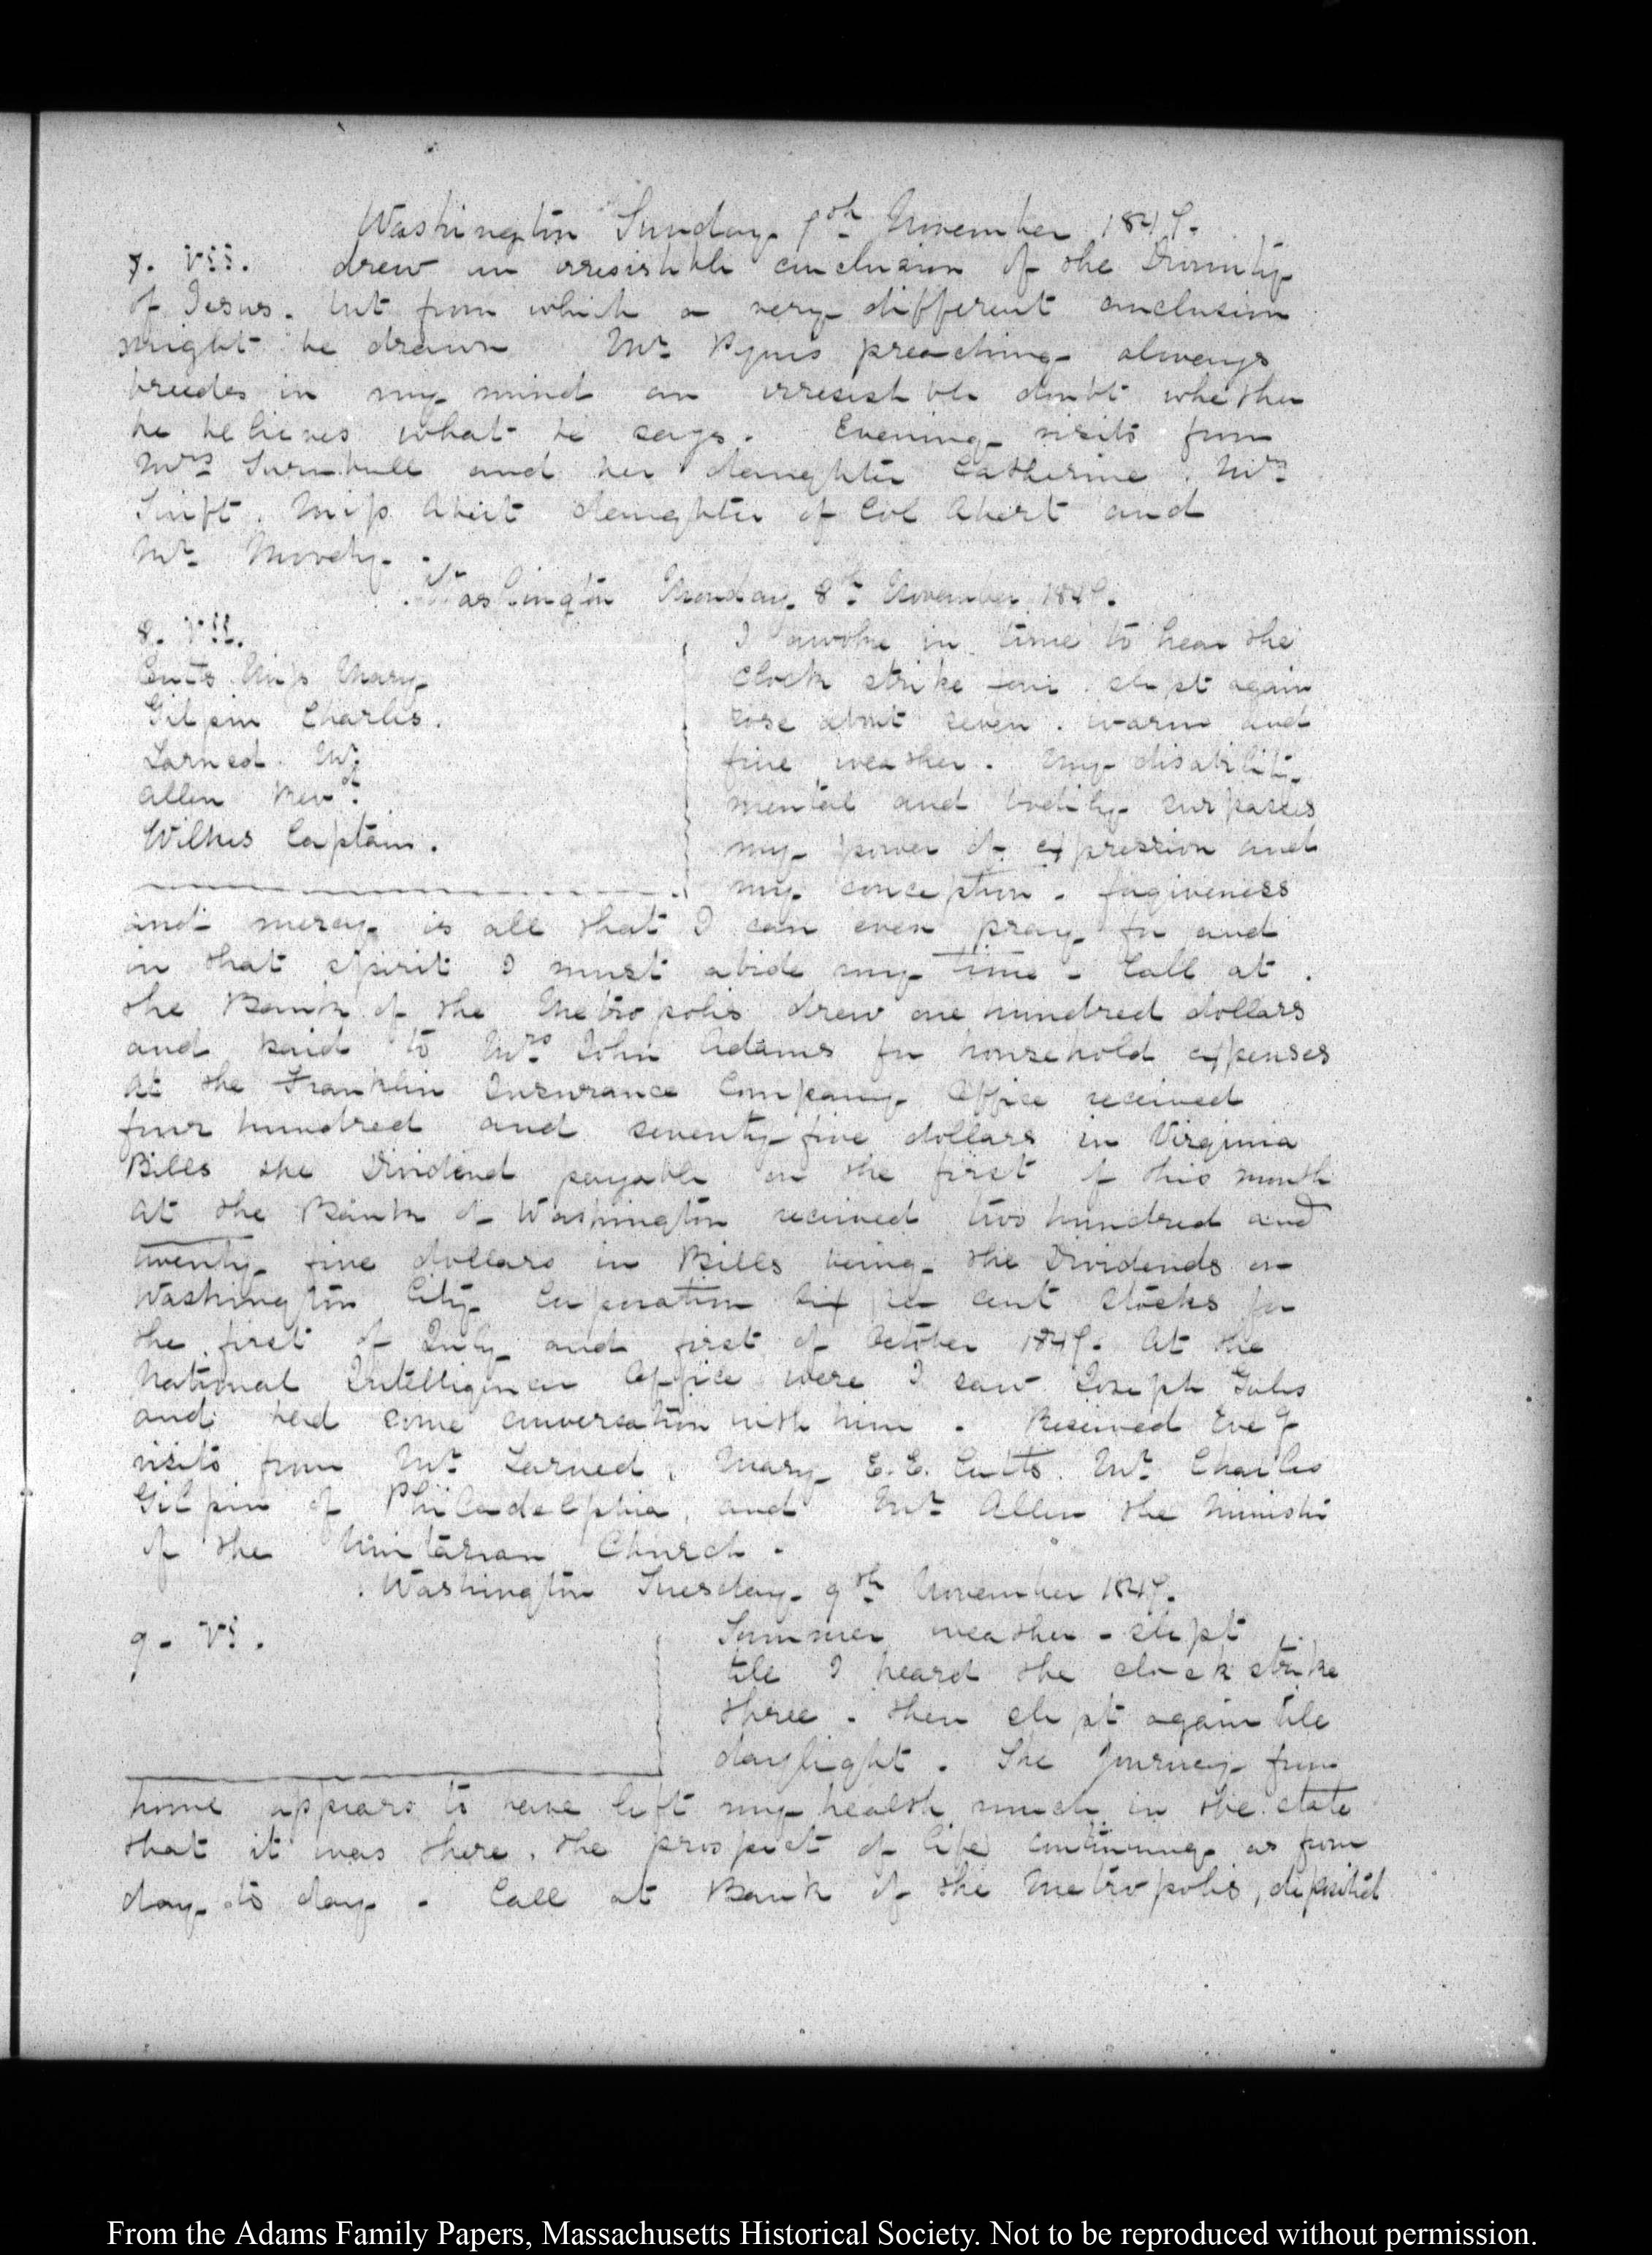 Washington Sunday 7th. November 1847.
7. VII. drew an irresistible conclusion of the Divinity
of Jesus. but from which a very different conclusion
might be drawn Mr. Pyne's preaching always
breeds in my mind an irresistible doubt whether
he believes what he says. Evening visits from
Mrs. Turnbull and her daughter Catherine. Mrs.
Swift. Miss Abert daughter of Col Abert and
Mr. Moody.
Washington Monday 8th. November 1847.
8. VII.
Cutts Miss Mary
Gilpin Charles.
Larned. Mr.
Allen Revd.
Wilkes Captain.
I awoke in time to hear the
clock strike four. slept again
rose about seven. warm and
fine weather. My disability
mental and bodily surpasses
my power of expression and
my conception. forgiveness
and mercy is all that I can even pray for and
in that spirit I must abide my time. Call at
the Bank of the Metropolis drew one hundred dollars
and paid to Mrs. John Adams for household expenses
At the Franklin Insurance Company Office received
four hundred and seventy five dollars in Virginia
Bills the Dividend payable on the first of this month
At the Bank of Washington received two hundred and
twenty five dollars in Bills being the Dividends on
Washington City Corporation six per cent stocks for
the first of July and first of October 1847. At the
National Intelligencer Office were I saw Joseph Gales
and had some conversation with him. Received Eveg
visits from Mr. Larned, Mary E. E. Cutts. Mr. Charles
Gilpin of Philadelphia, and Mr. Allen the Minister
of the Unitarian Church.
Washington Tuesday 9th. November 1847.
9. VI.
Summer weather. slept
till I heard the clock strike
three. then slept again till
daylight. The journey from
home appears to have left my health much in the state
that it was there. the prospect of life continuing as from
day to day. Call at Bank of the Metropolis, deposited
From the Adams Family Papers, Massachusetts Historical Society. Not to be reproduced without permission.